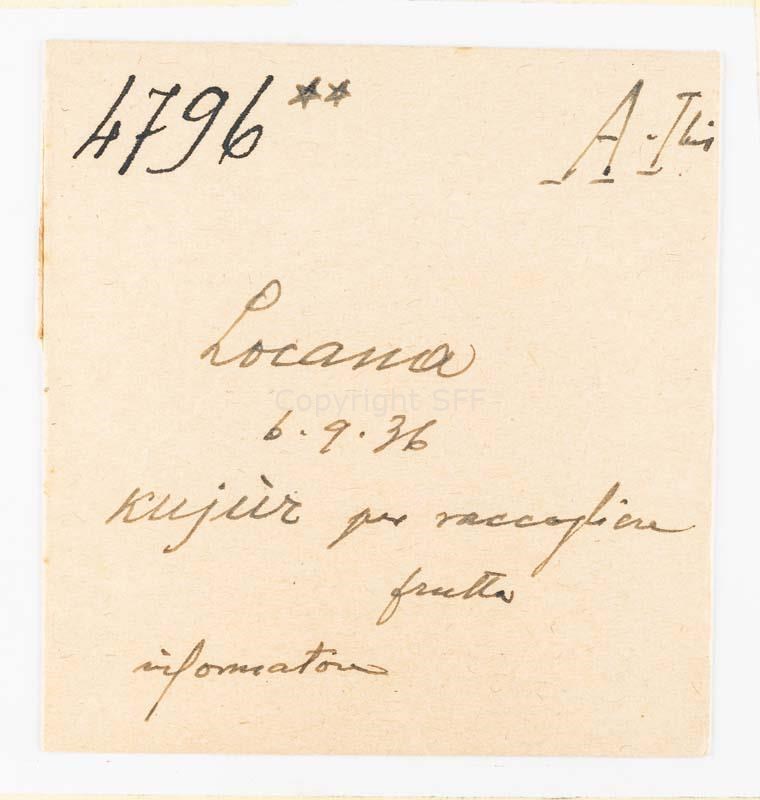 4796 **
A - I bis
Locana
Copyright SFF
6.9.36
kujùr per raccogliere
frutta
informatore